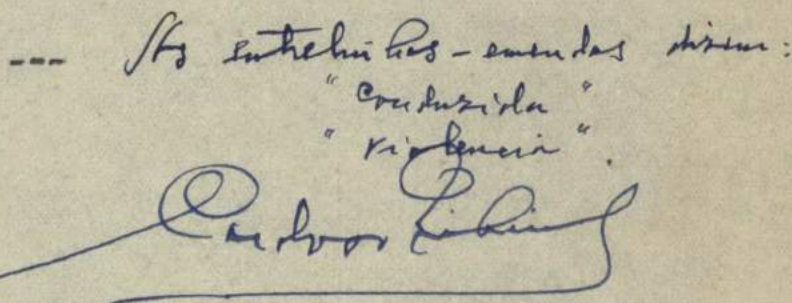 --- As entrelinhas-emendas dizem:
"conduzida"
"violencia".
Cardoso Ribeiro